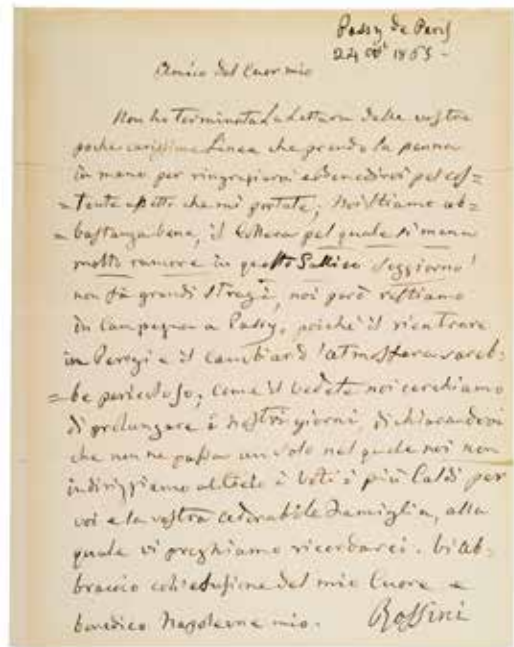 Passy de Paris
24 8bre 1865 -
Amico del Cuor mio
Non ho terminata La Lettura delle vostre
poche carissime Linee che prendo la penna
in mano per ringraziarvi e benedirvi pel cos=
=tante affetto che mi portate; Noi stiamo ab=
=bastanza bene, il Collera pel quale si mena
molto rumore in questo Gallico soggiorno
non fà grandi stragi, noi però restiamo
in Campagna a Passy, poichè il rientrare
in Parigi e il cambiar d'atmosfera sareb=
=be pericoloso, come il vedete noi cerchiamo
di prolungare i nostri giorni, dichiarandovi
che non ne passa un solo nel quale noi non
indirizziamo al Cielo i Voti i più Caldi per
voi e la vostra adorabile Famiglia, alla
quale vi preghiamo ricordarci. Vi ab=
braccio coll'effusione del mio Cuore e
benedico Napoleone mio.
Rossini